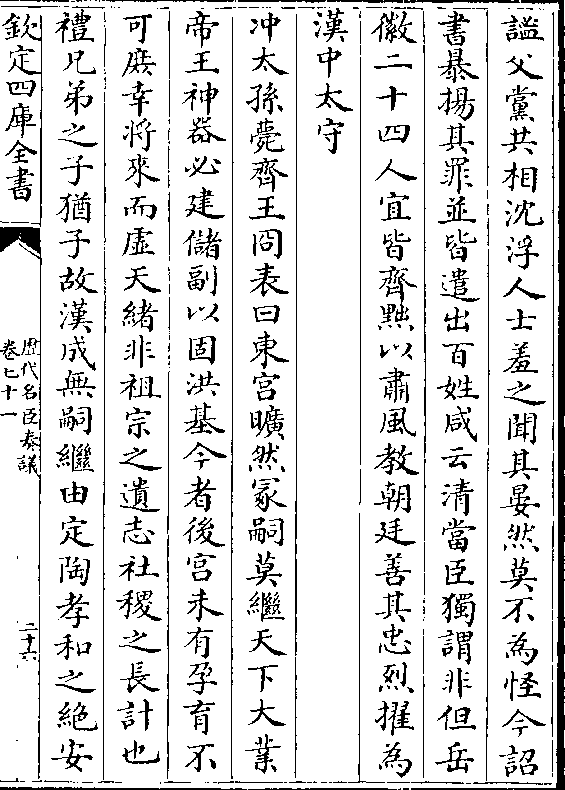 謐父黨共相沈浮人士羞之聞其晏然莫不為怪今詔
書暴揚其罪並皆遣出百姓咸云清當臣獨謂非但岳
徽二十四人宜皆齊黜以肅風教朝廷善其忠烈擢為
漢中太守
冲太孫薨齊王冏表曰東宫曠然冡嗣莫繼天下大業
帝王神器必建儲副以固洪基今者後宫未有孕育不
可庶幸將來而虚天緒非祖宗之遺志社稷之長計也
禮兄弟之子猶子故漢成無嗣繼由定陶孝和之絶安
欽定四庫全書
歴代名臣奏議
卷七十一
二十六